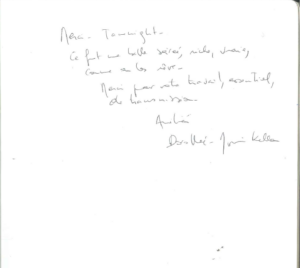 Merci Townight.
Ce fut une belle soirée, riche, vivante,
comme on les rêve.
Merci pour votre travail, essentiel,
de transmission.
Amitiés
Dorothée